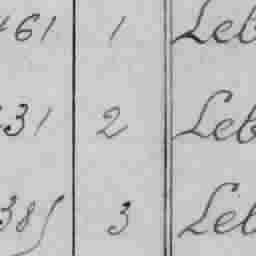 461 1 Leb
431 2 Leb
385 3 Leb